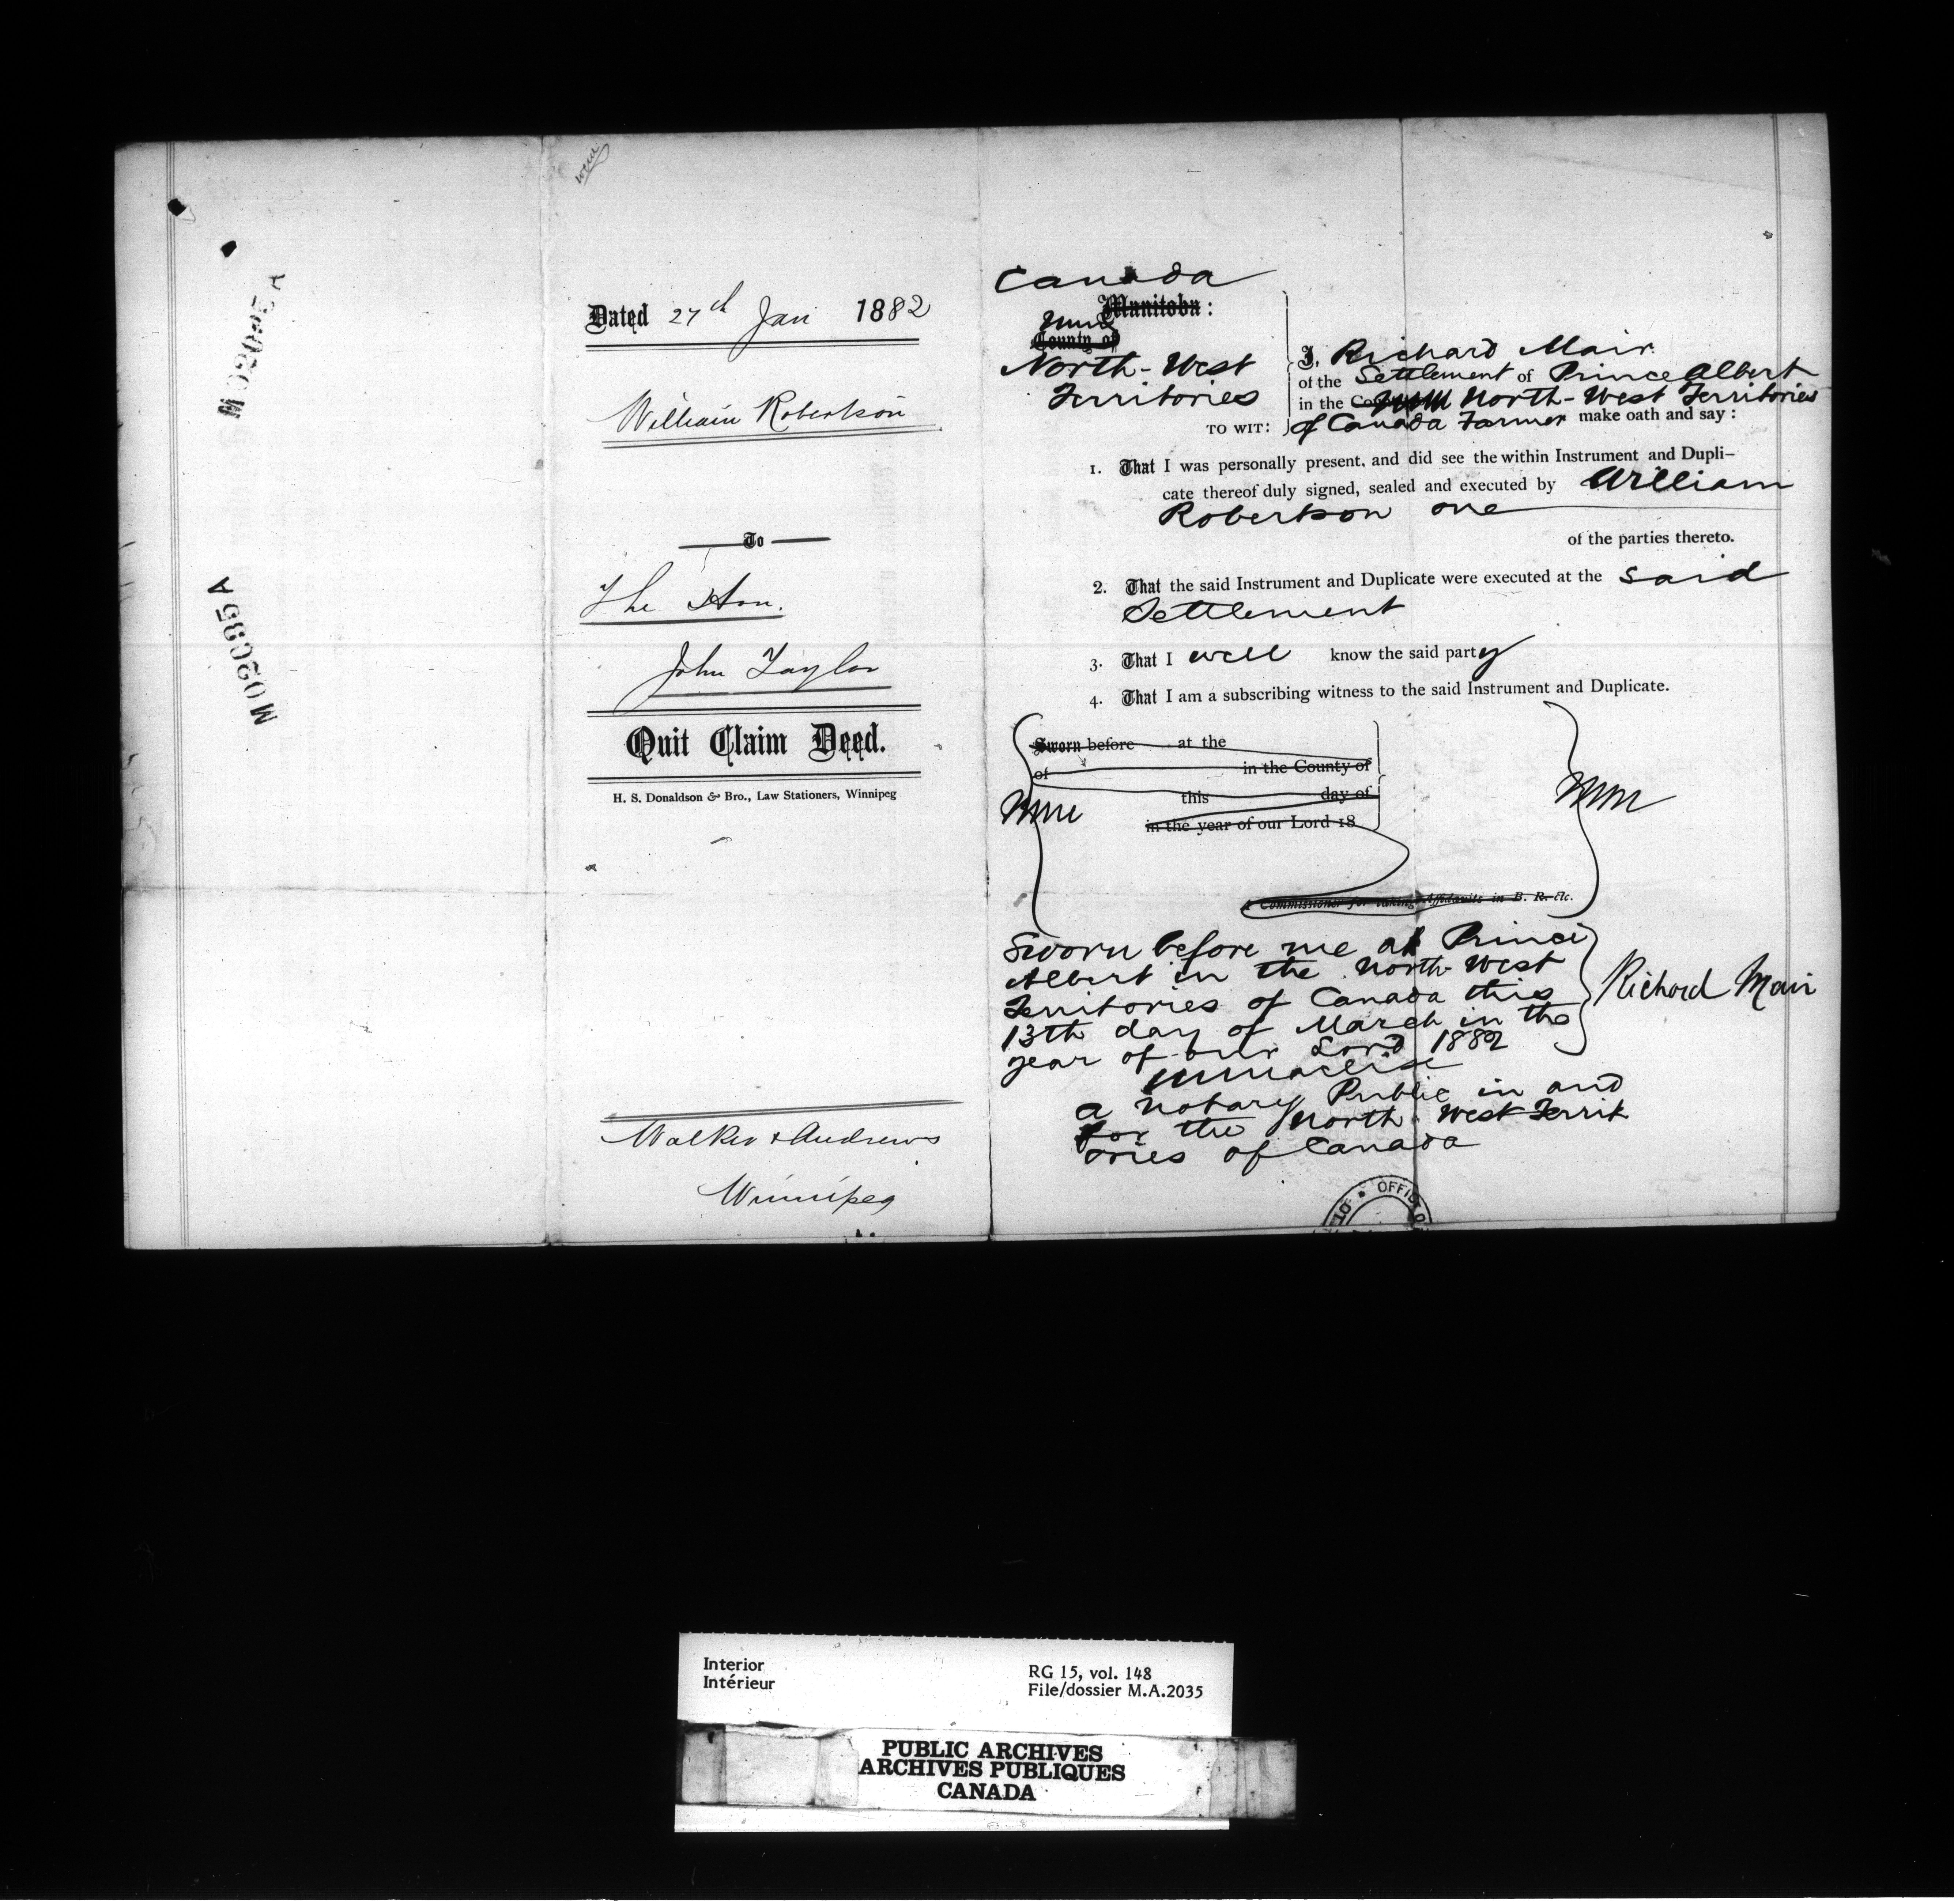 Dated 27th Jan 1882
William Robertson
To
The Hon.
John Taylor
Quit Claim Deed.
H. S. Donaldson & Bro., Law Stationers, Winnipeg
Walker & Andrews
Winnipeg
Canada
Manitoba :
County of
North-West
Territories
TO WIT:
I, Richard Mair
of the Settlement of Prince Albert
in the North-West Territories
of Canada Farmer make oath and say :
1. That I was personally present, and did see the within Instrument and Dupli-
cate thereof duly signed, sealed and executed by William
Robertson one
of the parties thereto.
2. That the said Instrument and Duplicate were executed at the said
Settlement
3. That I well know the said party
4. That I am a subscribing witness to the said Instrument and Duplicate.
Sworn before at the
of in the County of
this day of
in the year of our Lord 18
A Commissioner for taking Affidavits in B. R. etc.
Sworn before me at Prince
Albert in the North-West
Territories of Canada this
13th day of March in the
year of our Lord 1882
Richard Mair
a Notary Public in and
for the North-West Territ
ories of Canada
OFFICE OF
M 02035 A
M 02035 A
Interior
Intérieur
RG 15, vol. 148
File/dossier M.A.2035
PUBLIC ARCHIVES
ARCHIVES PUBLIQUES
CANADA